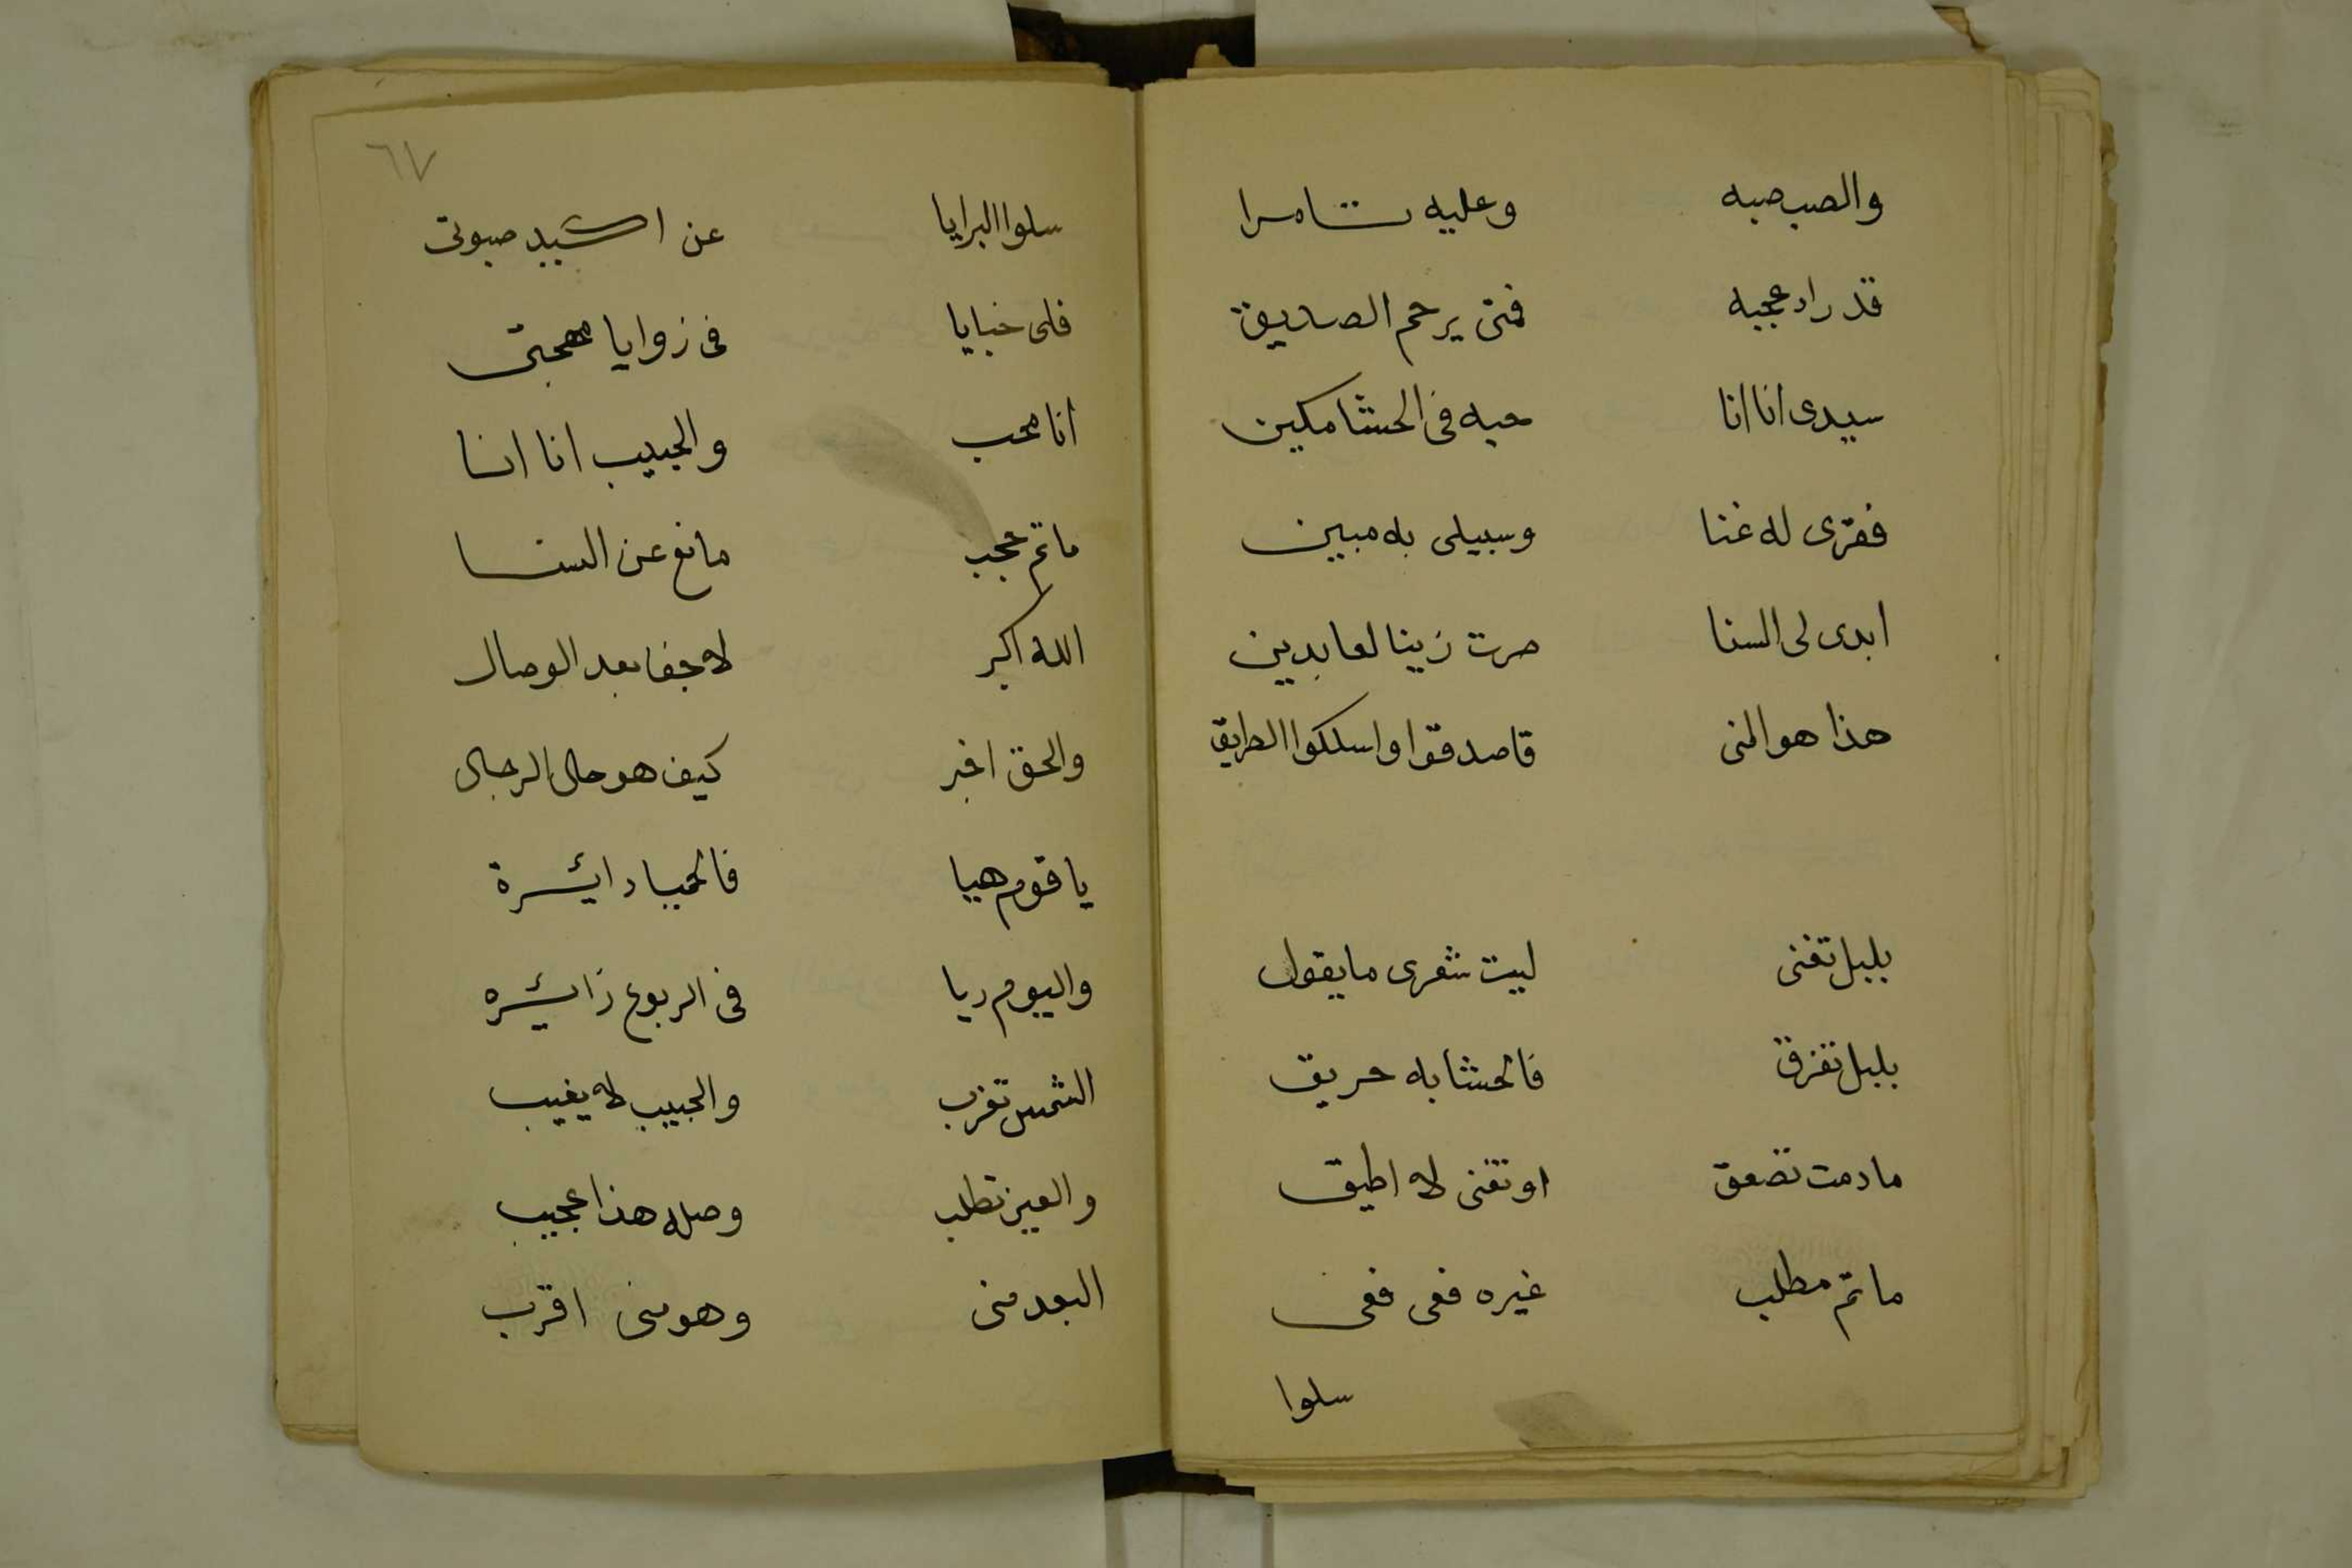 والصب صبه وعليه تتامرا
قد زاد عجبه فمتى يرحم الصديق
سيدى انا انا حبه فى الحشا مكين
فقرى له غنا وسبيلى به مبين
ابدى لى السنا صرت زينا لعابدين
هذا هو المنى فاصدقوا واسلكوا الطريق
بلبل تغنى ليت شعرى ما يقول
بلبل تفرق فالحشا به حريق
ما دمت تصعق او تغنى لا اطيق
ما ثم مطلب غيره ففى ففى
سلوا
٦٧
سلوا البرايا عن اكسيد صبوتى
فلى خبايا فى زوايا مهجتى
انا محب والحبيب انا انا
ما ثم عجب مانع عن السنا
الله اكبر لا جفا بعد الوصال
والحق اخبر كيف هو حال الرجال
يا قوم هيا فالحميا دائرة
واليوم ريا فى الربوع زائره
الشمس تغرب والحبيب لا يغيب
والعين تطلب وصله هذا عجيب
البعد منى وهو منى اقرب